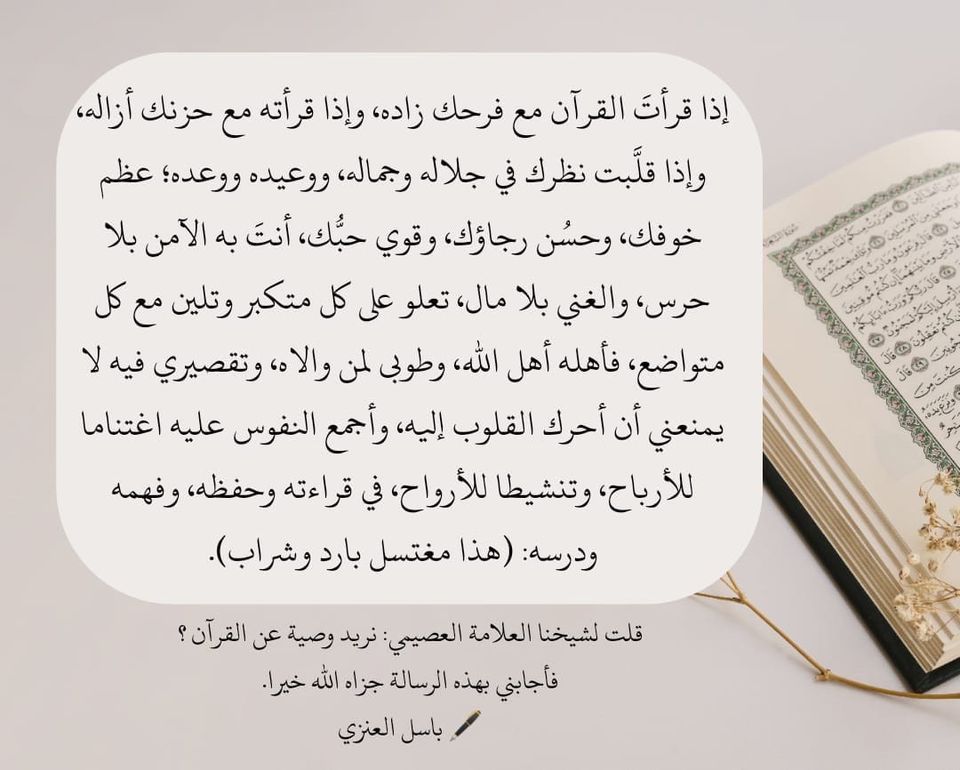 إذا قرأتَ القرآن مع فرحك زاده، وإذا قرأته مع حزنك أزاله،
وإذا قلَّبت نظرك في جلاله وجماله، ووعيده ووعده؛ عظم
خوفك، وحسُن رجاؤك، وقوي حبُّك، أنتَ به الآمن بلا
حرس، والغني بلا مال، تعلو على كل متكبر وتلين مع كل
متواضع، فأهله أهل الله، وطوبى لمن والاه، وتقصيري فيه لا
يمنعني أن أحرك القلوب إليه، وأجمع النفوس عليه اغتناما
للأرباح، وتنشيطا للأرواح، في قراءته وحفظه، وفهمه
ودرسه: (هذا مغتسل بارد وشراب).
قلت لشيخنا العلامة العصيمي: نريد وصية عن القرآن ؟
فأجابني بهذه الرسالة جزاه الله خيرا.
باسل العنزي